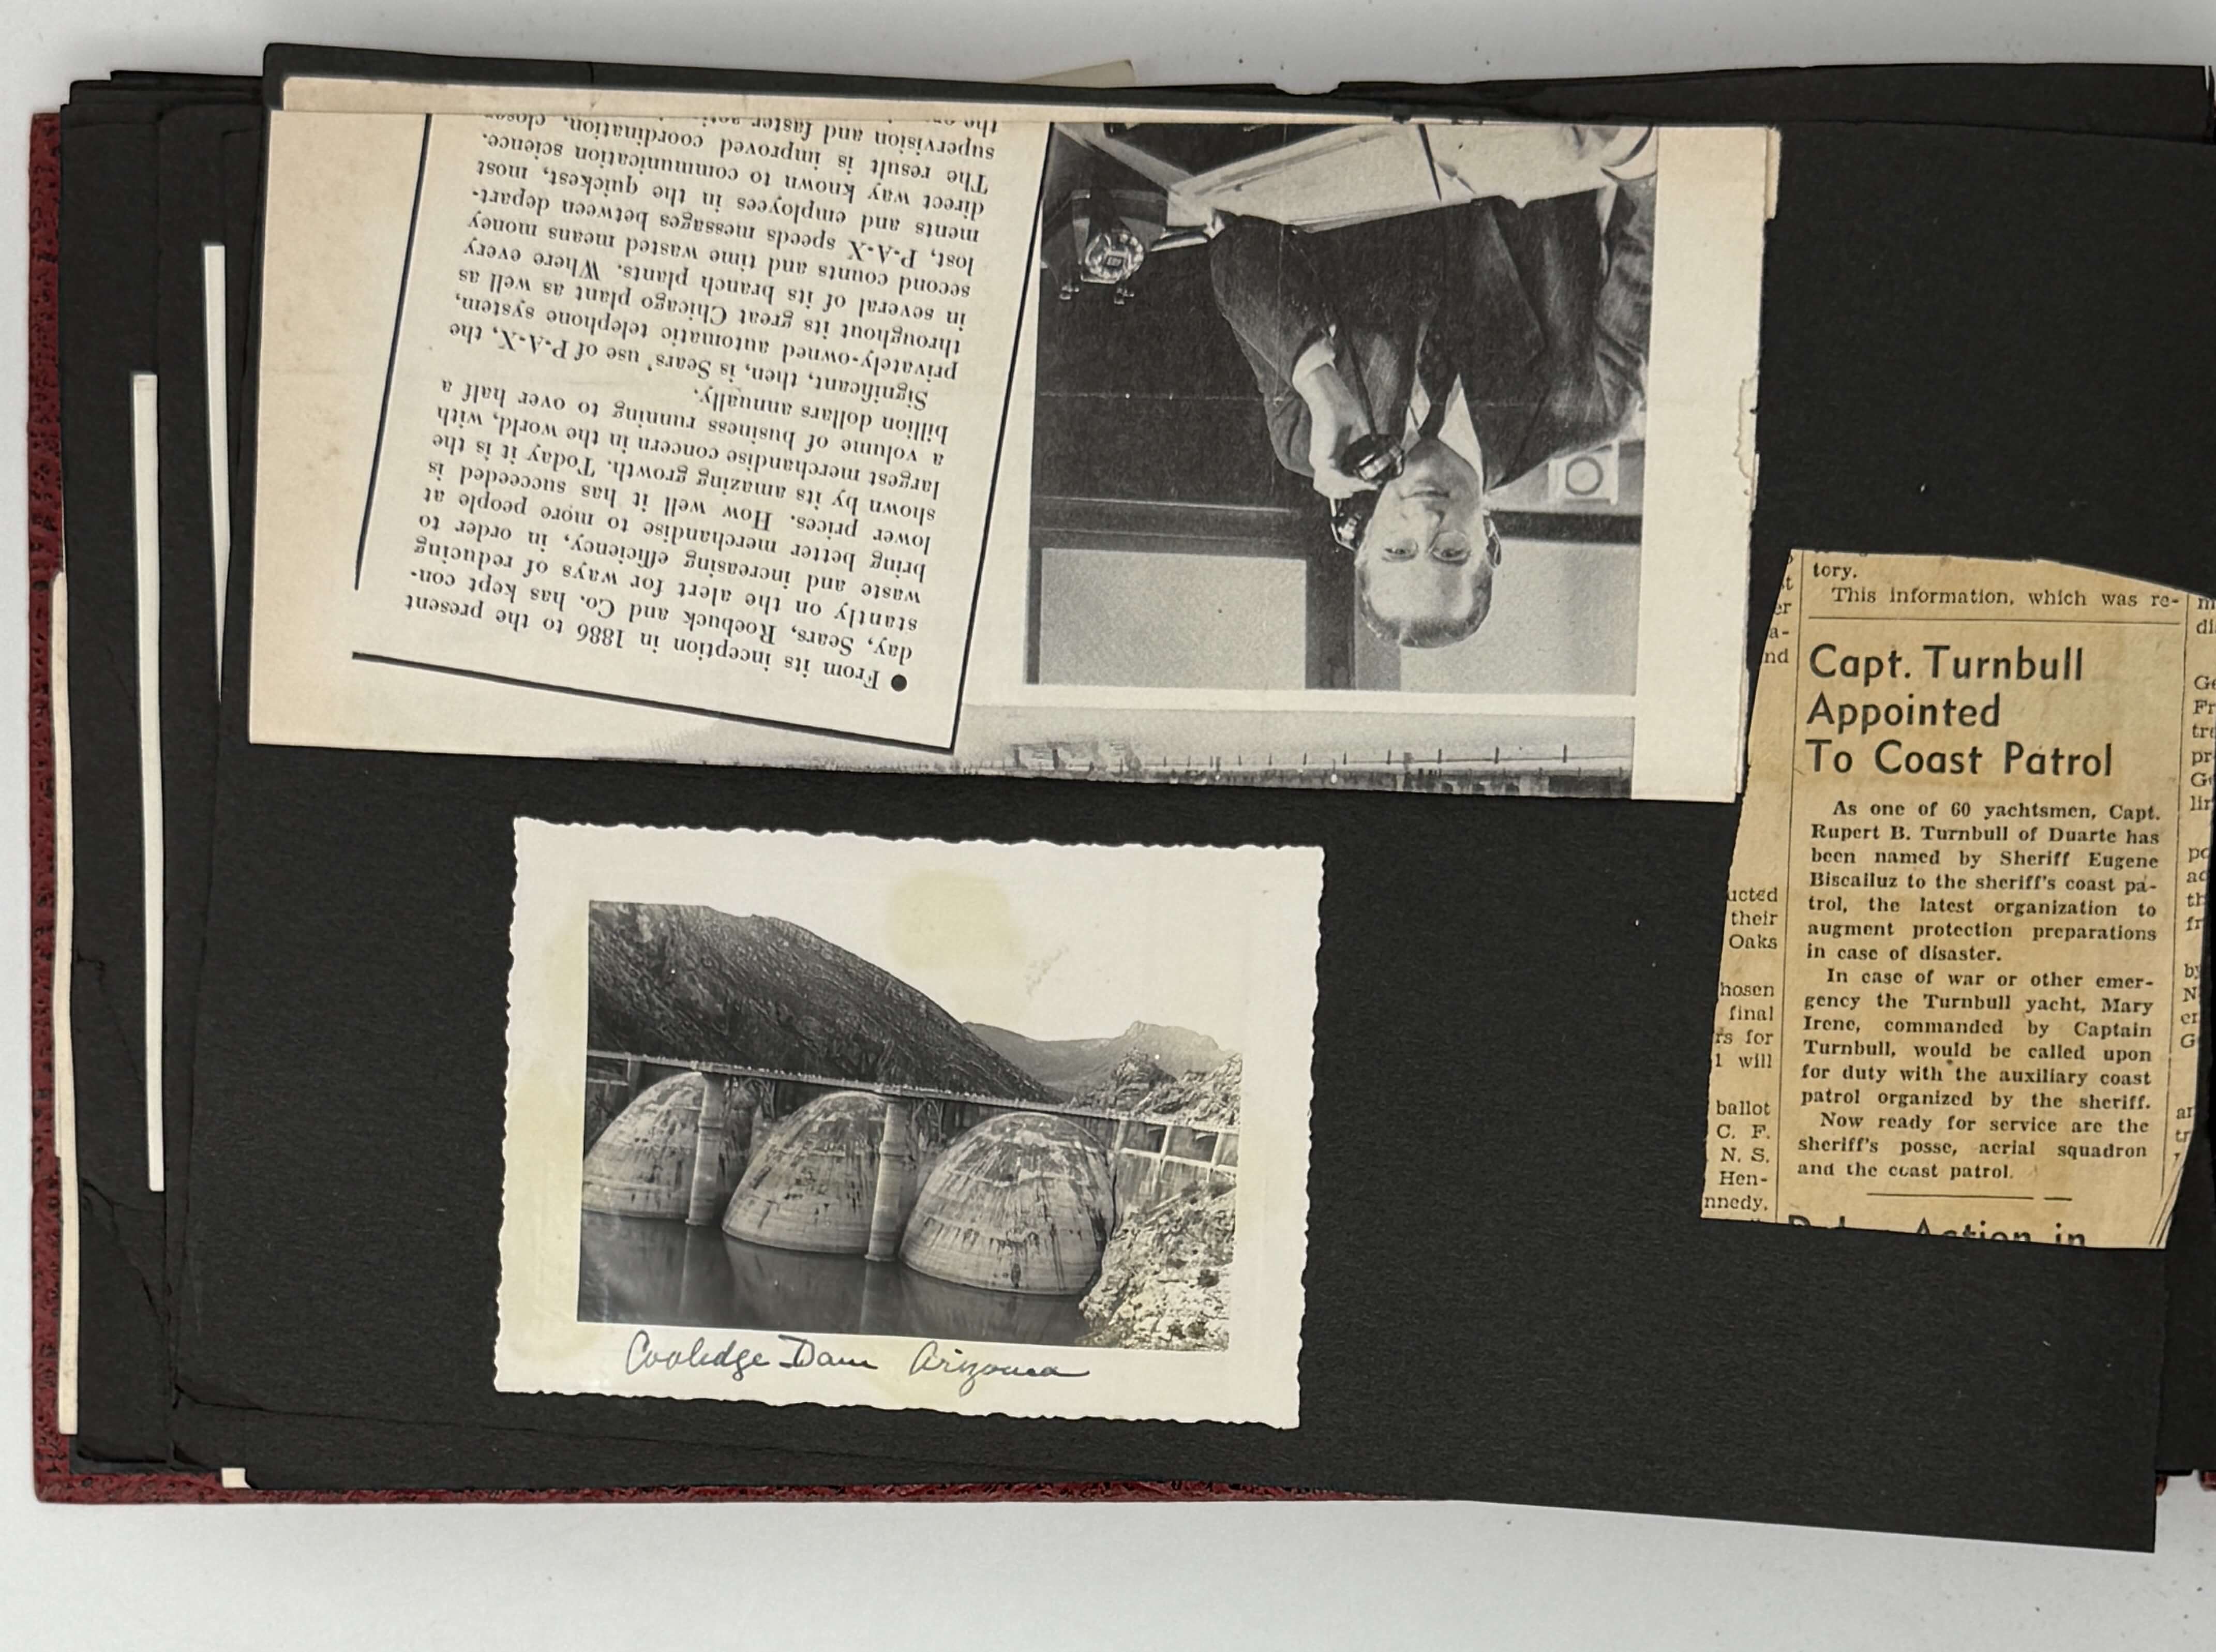 ● From its inception in 1886 to the present
day, Sears, Roebuck and Co. has kept con-
stantly on the alert for ways of reducing
waste and increasing efficiency, in order to
bring better merchandise to more people at
lower prices. How well it has succeeded is
shown by its amazing growth. Today it is the
largest merchandise concern in the world, with
a volume of business running to over half a
billion dollars annually.
Significant, then, is Sears' use of P-A-X, the
privately-owned automatic telephone system,
throughout its great Chicago plant as well as
in several of its branch plants. Where every
second counts and time wasted means money
lost, P-A-X speeds messages between depart-
ments and employees in the quickest, most
direct way known to communication science.
The result is improved coordination, closer
supervision and faster
the
Coolidge Dam Arizona
tory.
This information, which was re-
Capt. Turnbull
Appointed
To Coast Patrol
As one of 60 yachtsmen, Capt.
Rupert B. Turnbull of Duarte has
been named by Sheriff Eugene
Biscailuz to the sheriff's coast pa-
trol, the latest organization to
augment protection preparations
in case of disaster.
In case of war or other emer-
gency the Turnbull yacht, Mary
Irene, commanded by Captain
Turnbull, would be called upon
for duty with the auxiliary coast
patrol organized by the sheriff.
Now ready for service are the
sheriff's posse, aerial squadron
and the coast patrol.
Action in
nd
ucted
their
Oaks
hosen
final
rs for
l will
ballot
C. F.
N. S.
Hen-
nnedy,